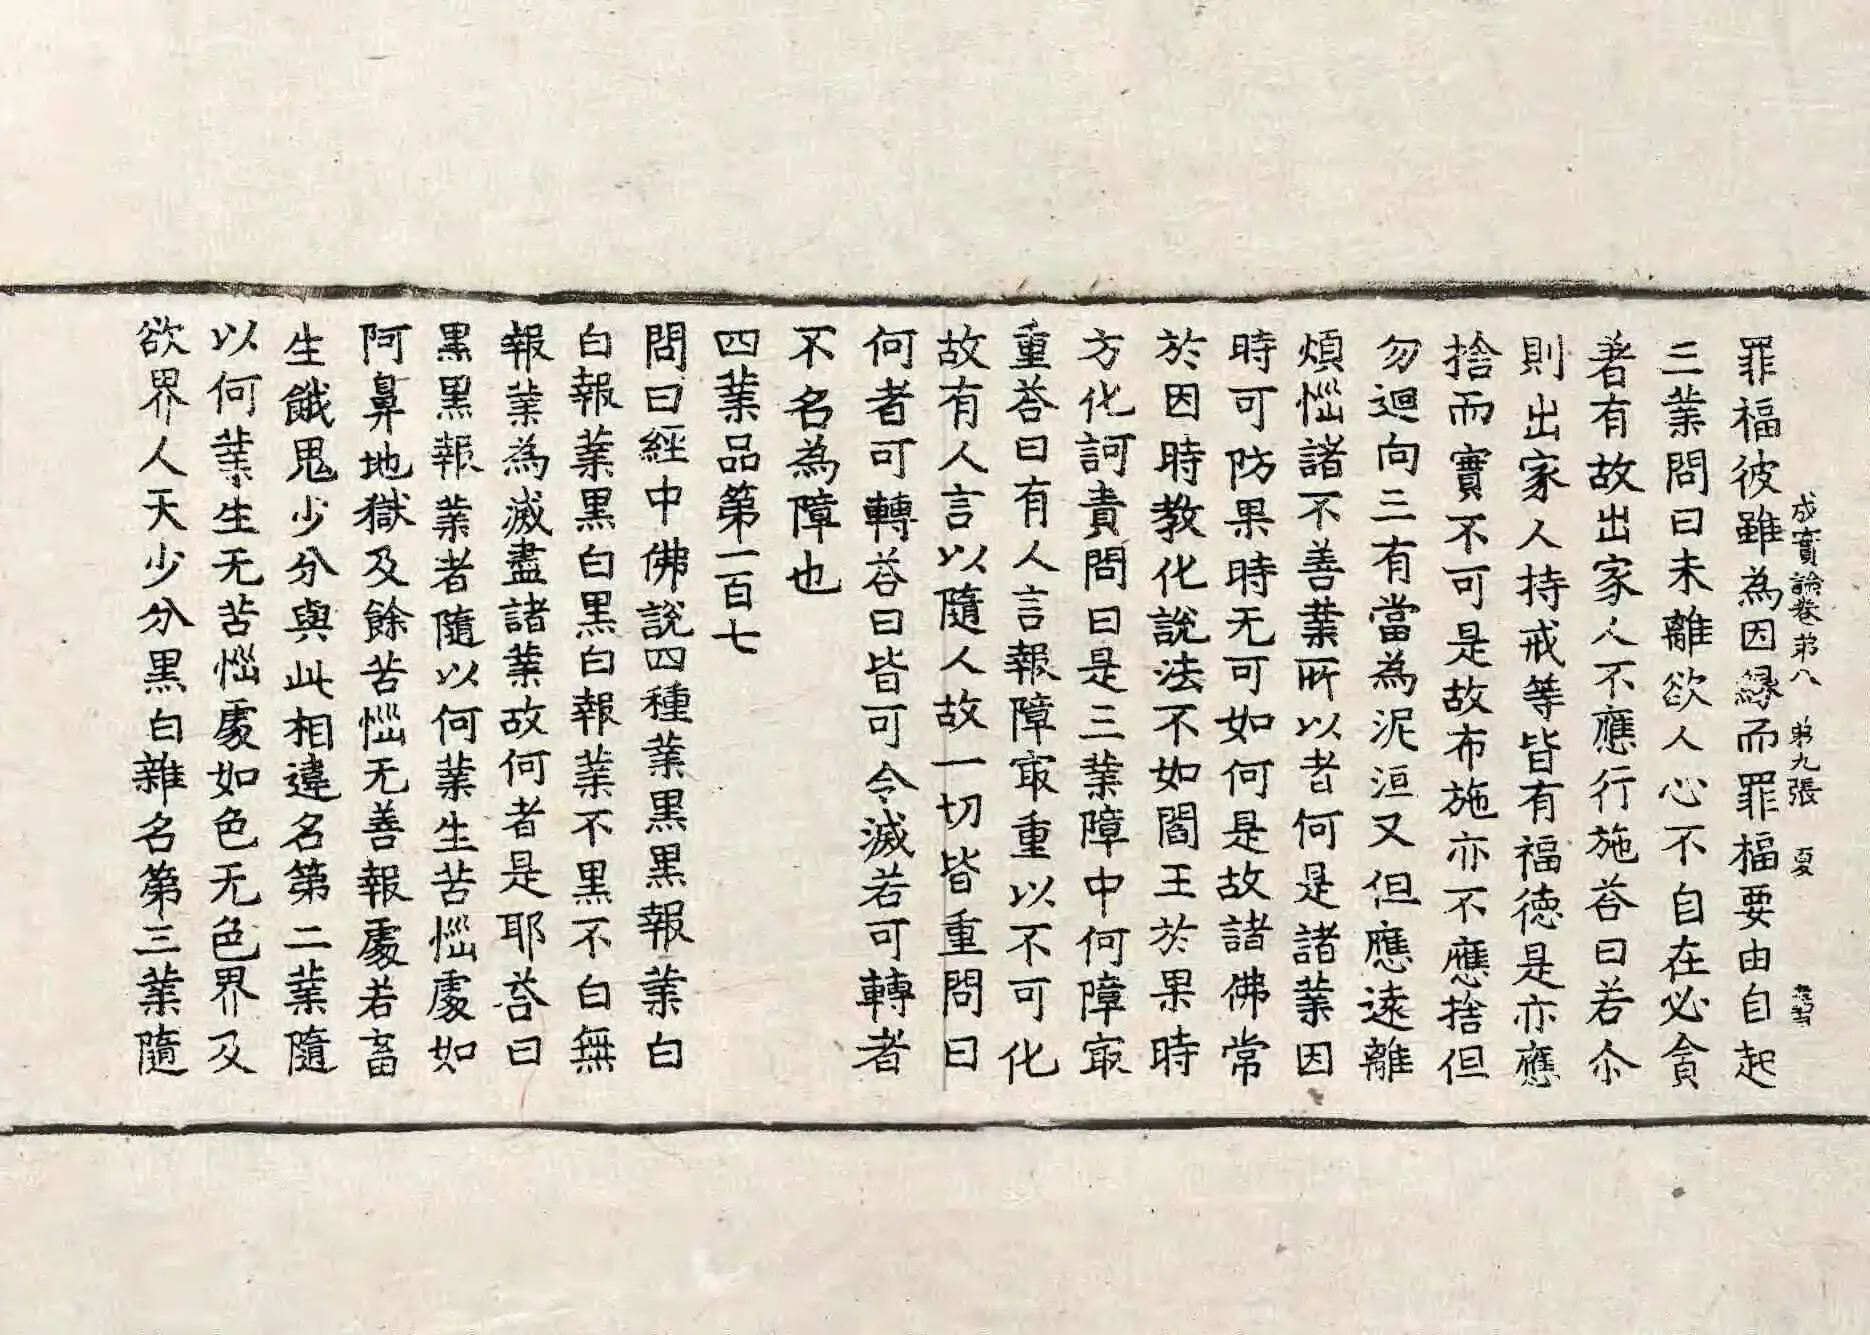 成實論卷弟八 弟九張 夏
罪福彼雖為因緣而罪福要由自起
三業問曰未離欲人心不自在必貪
著有故出家人不應行施荅曰若尒
則出家人持戒等皆有福德是亦應
捨而實不可是故布施亦不應捨但
勿迴向三有當為泥洹又但應遠離
煩惱諸不善業所以者何是諸業因
時可防果時无可如何是故諸佛常
於因時教化說法不如閻王於果時
方化訶責問曰是三業障中何障㝡
重荅曰有人言報障㝡重以不可化
故有人言以隨人故一切皆重問曰
何者可轉荅曰皆可令滅若可轉者
不名為障也
四業品第一百七
問曰經中佛說四種業黑黑報業白
白報業黑白黑白報業不黑不白無
報業為滅盡諸業故何者是耶荅曰
黑黑報業者隨以何業生苦惱處如
阿鼻地獄及餘苦惱无善報處若畜
生餓鬼少分與此相違名第二業隨
以何業生无苦惱處如色无色界及
欲界人天少分黑白雜名第三業隨